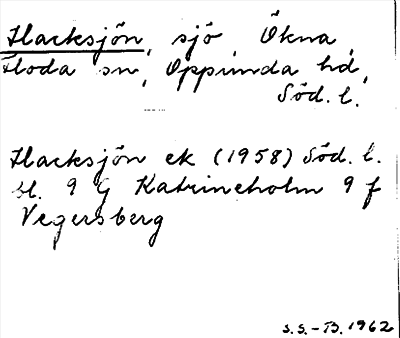 Hacksjön, sjö, Ökna,
Floda sn, Oppunda hd,
Söd. l.
Hacksjön ek (1958) Söd. l.
bl. 9 G Katrineholm 9 f
Vegersberg
S.S.-B. 1962